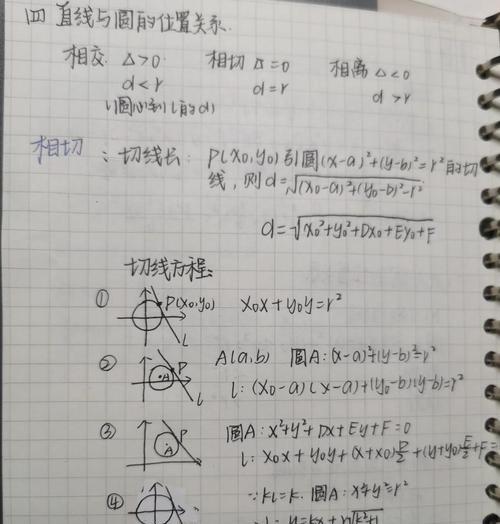 四 直线与圆的位置关系.
相交 Δ>0 相切 Δ=0 相离 Δ<0
d<r d=r d>r
(圆心到l的d)
相切：切线长: P(x0,y0)引圆(x-a)²+(y-b)²=r²的切
线,则d=√(x0-a)²+(y0-b)²-r²
d=√x0²+y0²+Dx0+Ey0+F
切线方程:
① P(x0,y0) x0x+y0y=r²
l
② P A A(a,b) 圆A:(x-a)²+(y-b)²=r²
l l:(x0-a)(x-a)+(y0-b)(y-b)=r²
③ P A 圆A:x²+y²+Dx+Ey+F=0
l:x0x+y0y+(x+x0)D/2+(y+y0)E/2+F=
④ ∵kl=k. 圆A:x²+y²=r²
l:y=kx+r√k²+1